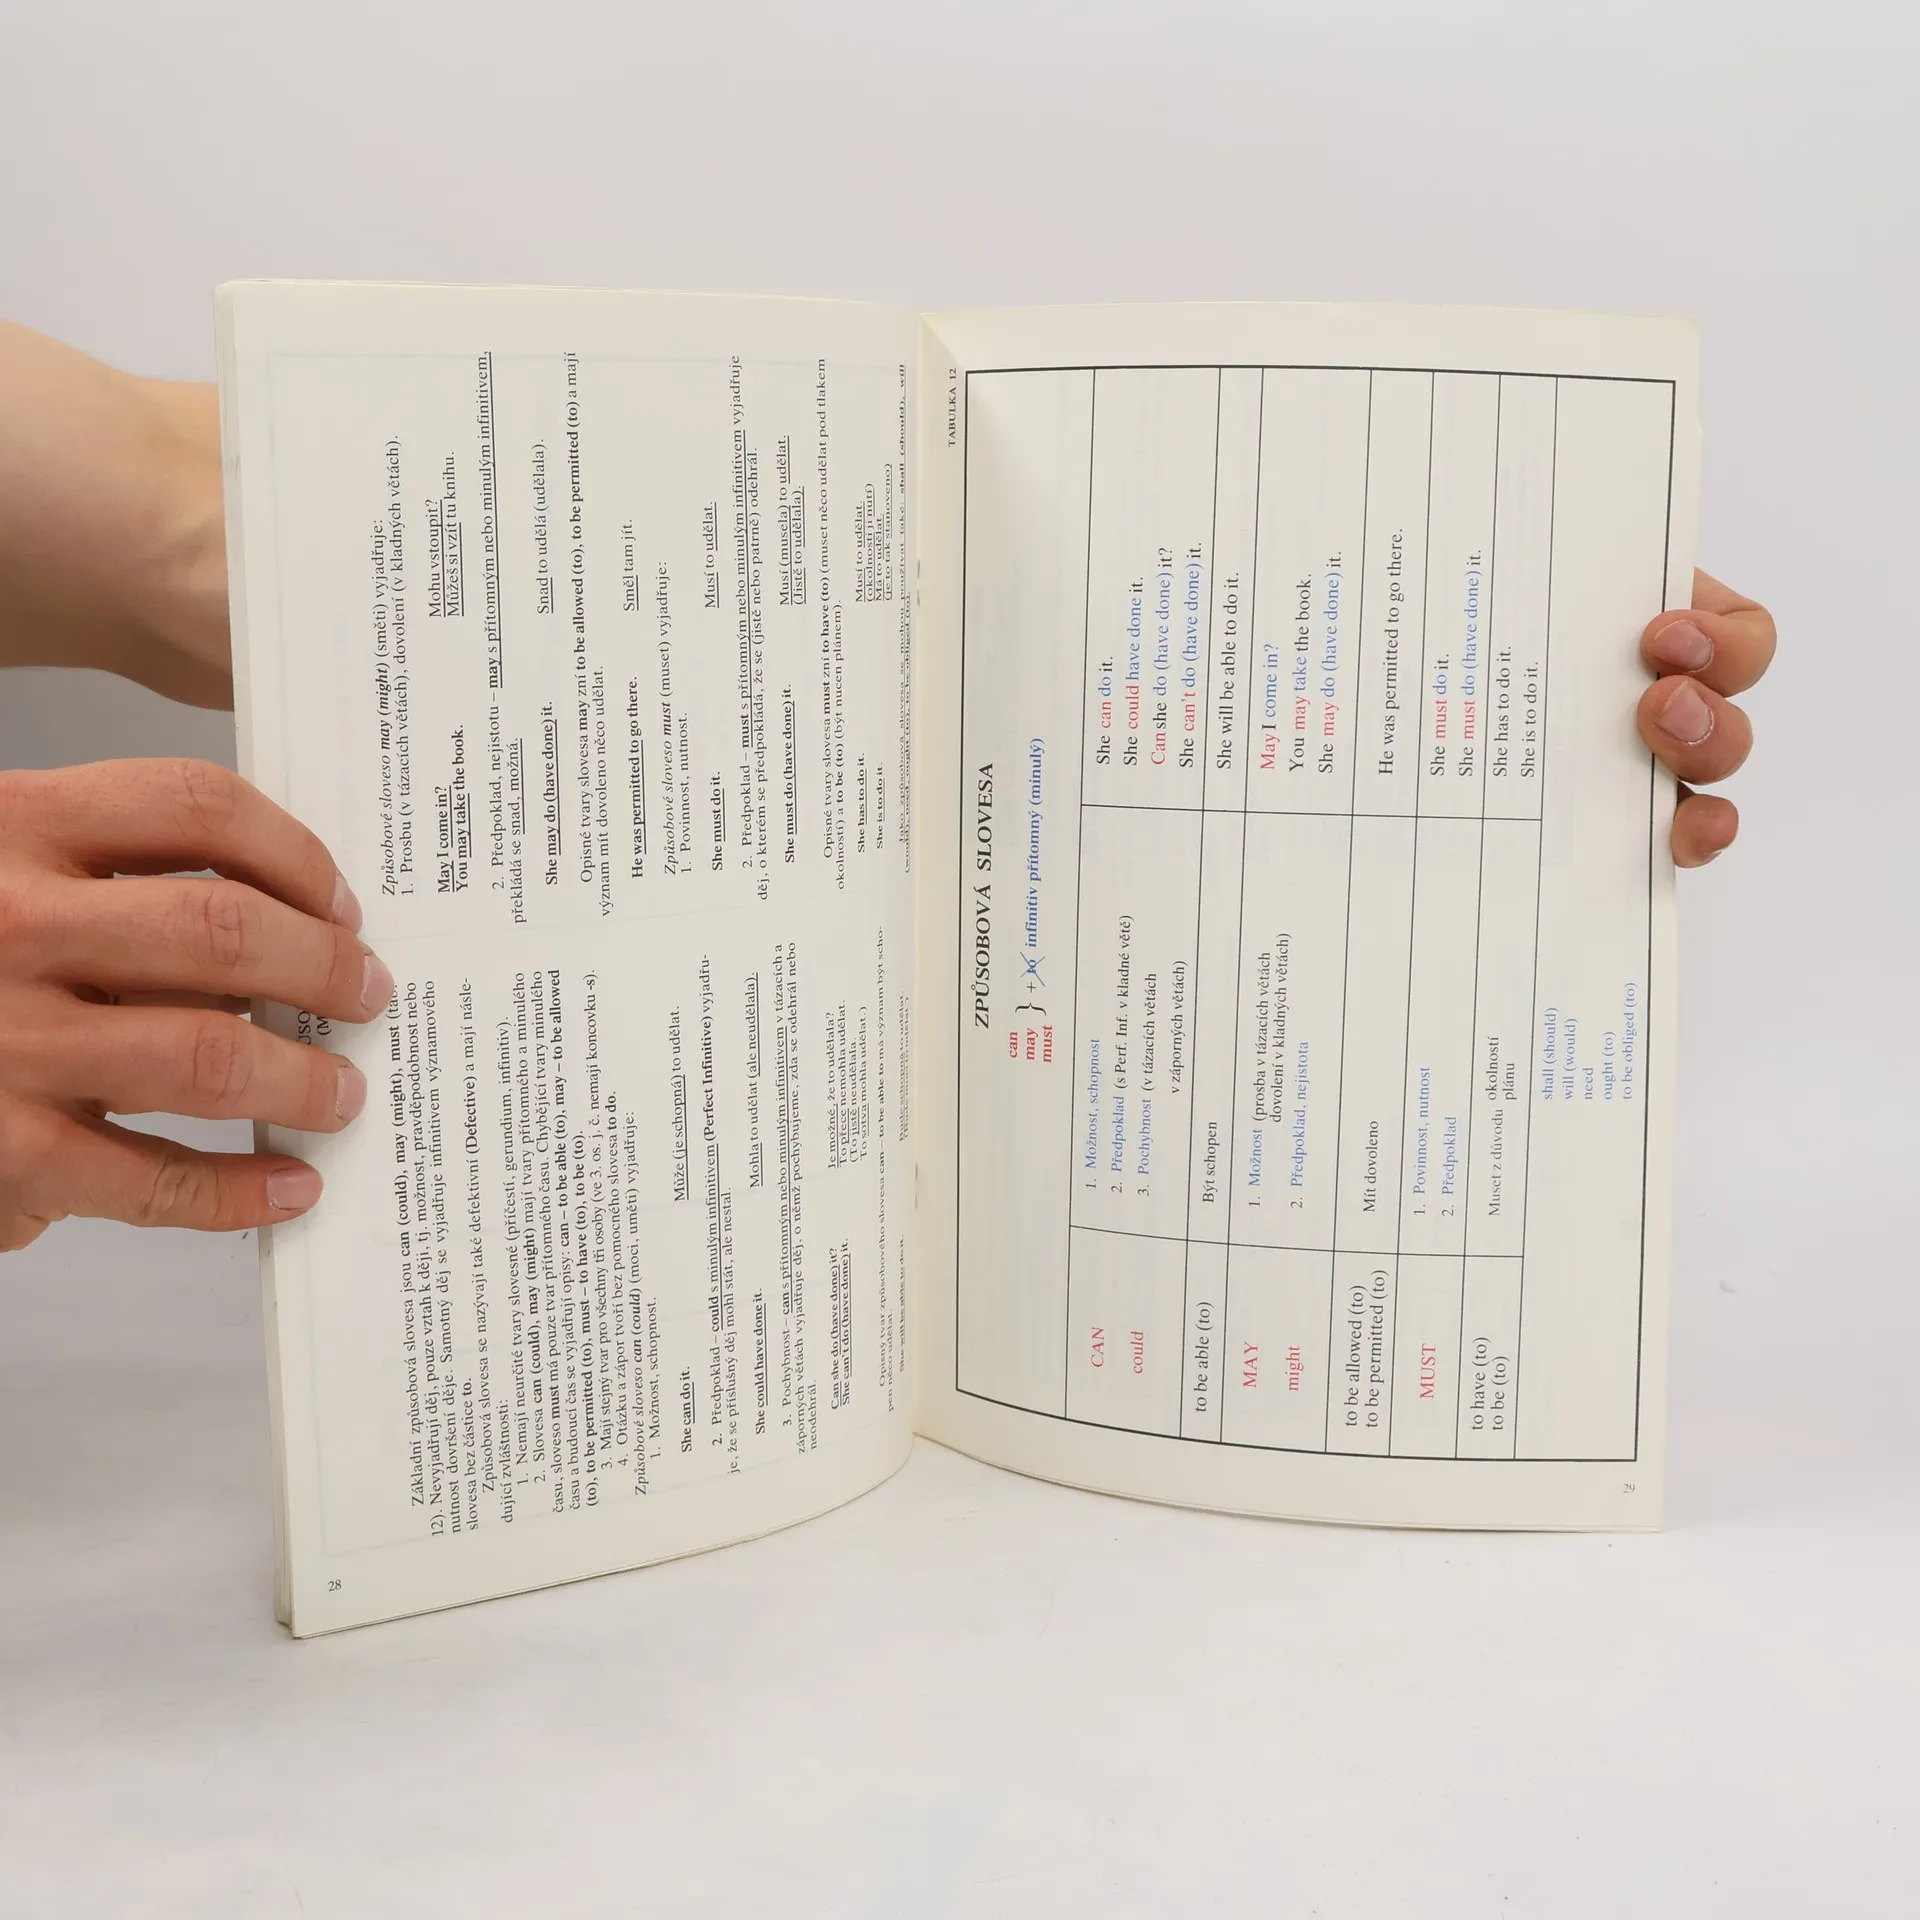 28
Základní způsobová slovesa jsou can (could), may (might), must (tab.
12). Nevyjadřují děj, pouze vztah k ději, tj. možnost, pravděpodobnost nebo
nutnost dovršení děje. Samotný děj se vyjadřuje infinitivem významového
slovesa bez částice to.
Způsobová slovesa se nazývají také defektivní (Defective) a mají násle-
dující zvláštnosti:
1. Nemají neurčité tvary slovesné (příčestí, gerundium, infinitiv).
2. Slovesa can (could), may (might) mají tvary přítomného a minulého
času, sloveso must má pouze tvar přítomného času. Chybějící tvary minulého
času a budoucí čas se vyjadřují opisy: can – to be able (to), may – to be allowed
(to), to be permitted (to), must – to have (to), to be (to).
3. Mají stejný tvar pro všechny tři osoby (ve 3. os. j. č. nemají koncovku -s).
4. Otázku a zápor tvoří bez pomocného slovesa to do.
Způsobové sloveso can (could) (moci, uměti) vyjadřuje:
1. Možnost, schopnost.
She can do it. Může (je schopná) to udělat.
2. Předpoklad – could s minulým infinitivem (Perfect Infinitive) vyjadřu-
je, že se příslušný děj mohl stát, ale nestal.
She could have done it. Mohla to udělat (ale neudělala).
3. Pochybnost – can s přítomným nebo minulým infinitivem v tázacích a
záporných větách vyjadřuje děj, o němž pochybujeme, zda se odehrál nebo
neodehrál.
Can she do (have done) it? Je možné, že to udělala?
She can't do (have done) it. To přece nemohla udělat.
(To jistě neudělala.
To sotva mohla udělat.)
Opisný tvar způsobového slovesa can – to be able to má význam být scho-
pen něco udělat.
She will be able to do it. Bude schopná to udělat.
Způsobové sloveso may (might) (směti) vyjadřuje:
1. Prosbu (v tázacích větách), dovolení (v kladných větách).
May I come in? Mohu vstoupit?
You may take the book. Můžeš si vzít tu knihu.
2. Předpoklad, nejistotu – may s přítomným nebo minulým infinitivem,
překládá se snad, možná.
She may do (have done) it. Snad to udělá (udělala).
Opisné tvary slovesa may zní to be allowed (to), to be permitted (to) a mají
význam mít dovoleno něco udělat.
He was permitted to go there. Směl tam jít.
Způsobové sloveso must (muset) vyjadřuje:
1. Povinnost, nutnost.
She must do it. Musí to udělat.
2. Předpoklad – must s přítomným nebo minulým infinitivem vyjadřuje
děj, o kterém se předpokládá, že se (jistě nebo patrně) odehrál.
She must do (have done) it. Musí (musela) to udělat.
(Jistě to udělala).
Opisné tvary slovesa must zní to have (to) (muset něco udělat pod tlakem
okolností) a to be (to) (být nucen plánem).
She has to do it. Musí to udělat.
(okolnosti ji nutí)
She is to do it. Má to udělat.
(je to tak stanoveno)
Jako způsobová slovesa se mohou používat také: shall (should), will
(would), need, ought (to), to be obliged (to).
TABULKA 12
ZPŮSOBOVÁ SLOVESA
can
may } + to infinitiv přítomný (minulý)
must
CAN 1. Možnost, schopnost She can do it.
could 2. Předpoklad (s Perf. Inf. v kladné větě) She could have done it.
3. Pochybnost (v tázacích větách Can she do (have done) it?
v záporných větách) She can't do (have done) it.
to be able (to) Být schopen She will be able to do it.
MAY 1. Možnost (prosba v tázacích větách May I come in?
dovolení v kladných větách) You may take the book.
might 2. Předpoklad, nejistota She may do (have done) it.
to be allowed (to)
to be permitted (to) Mít dovoleno He was permitted to go there.
MUST 1. Povinnost, nutnost She must do it.
2. Předpoklad She must do (have done) it.
to have (to) Muset z důvodu okolností She has to do it.
to be (to) plánu She is to do it.
shall (should)
will (would)
need
ought (to)
to be obliged (to)
29